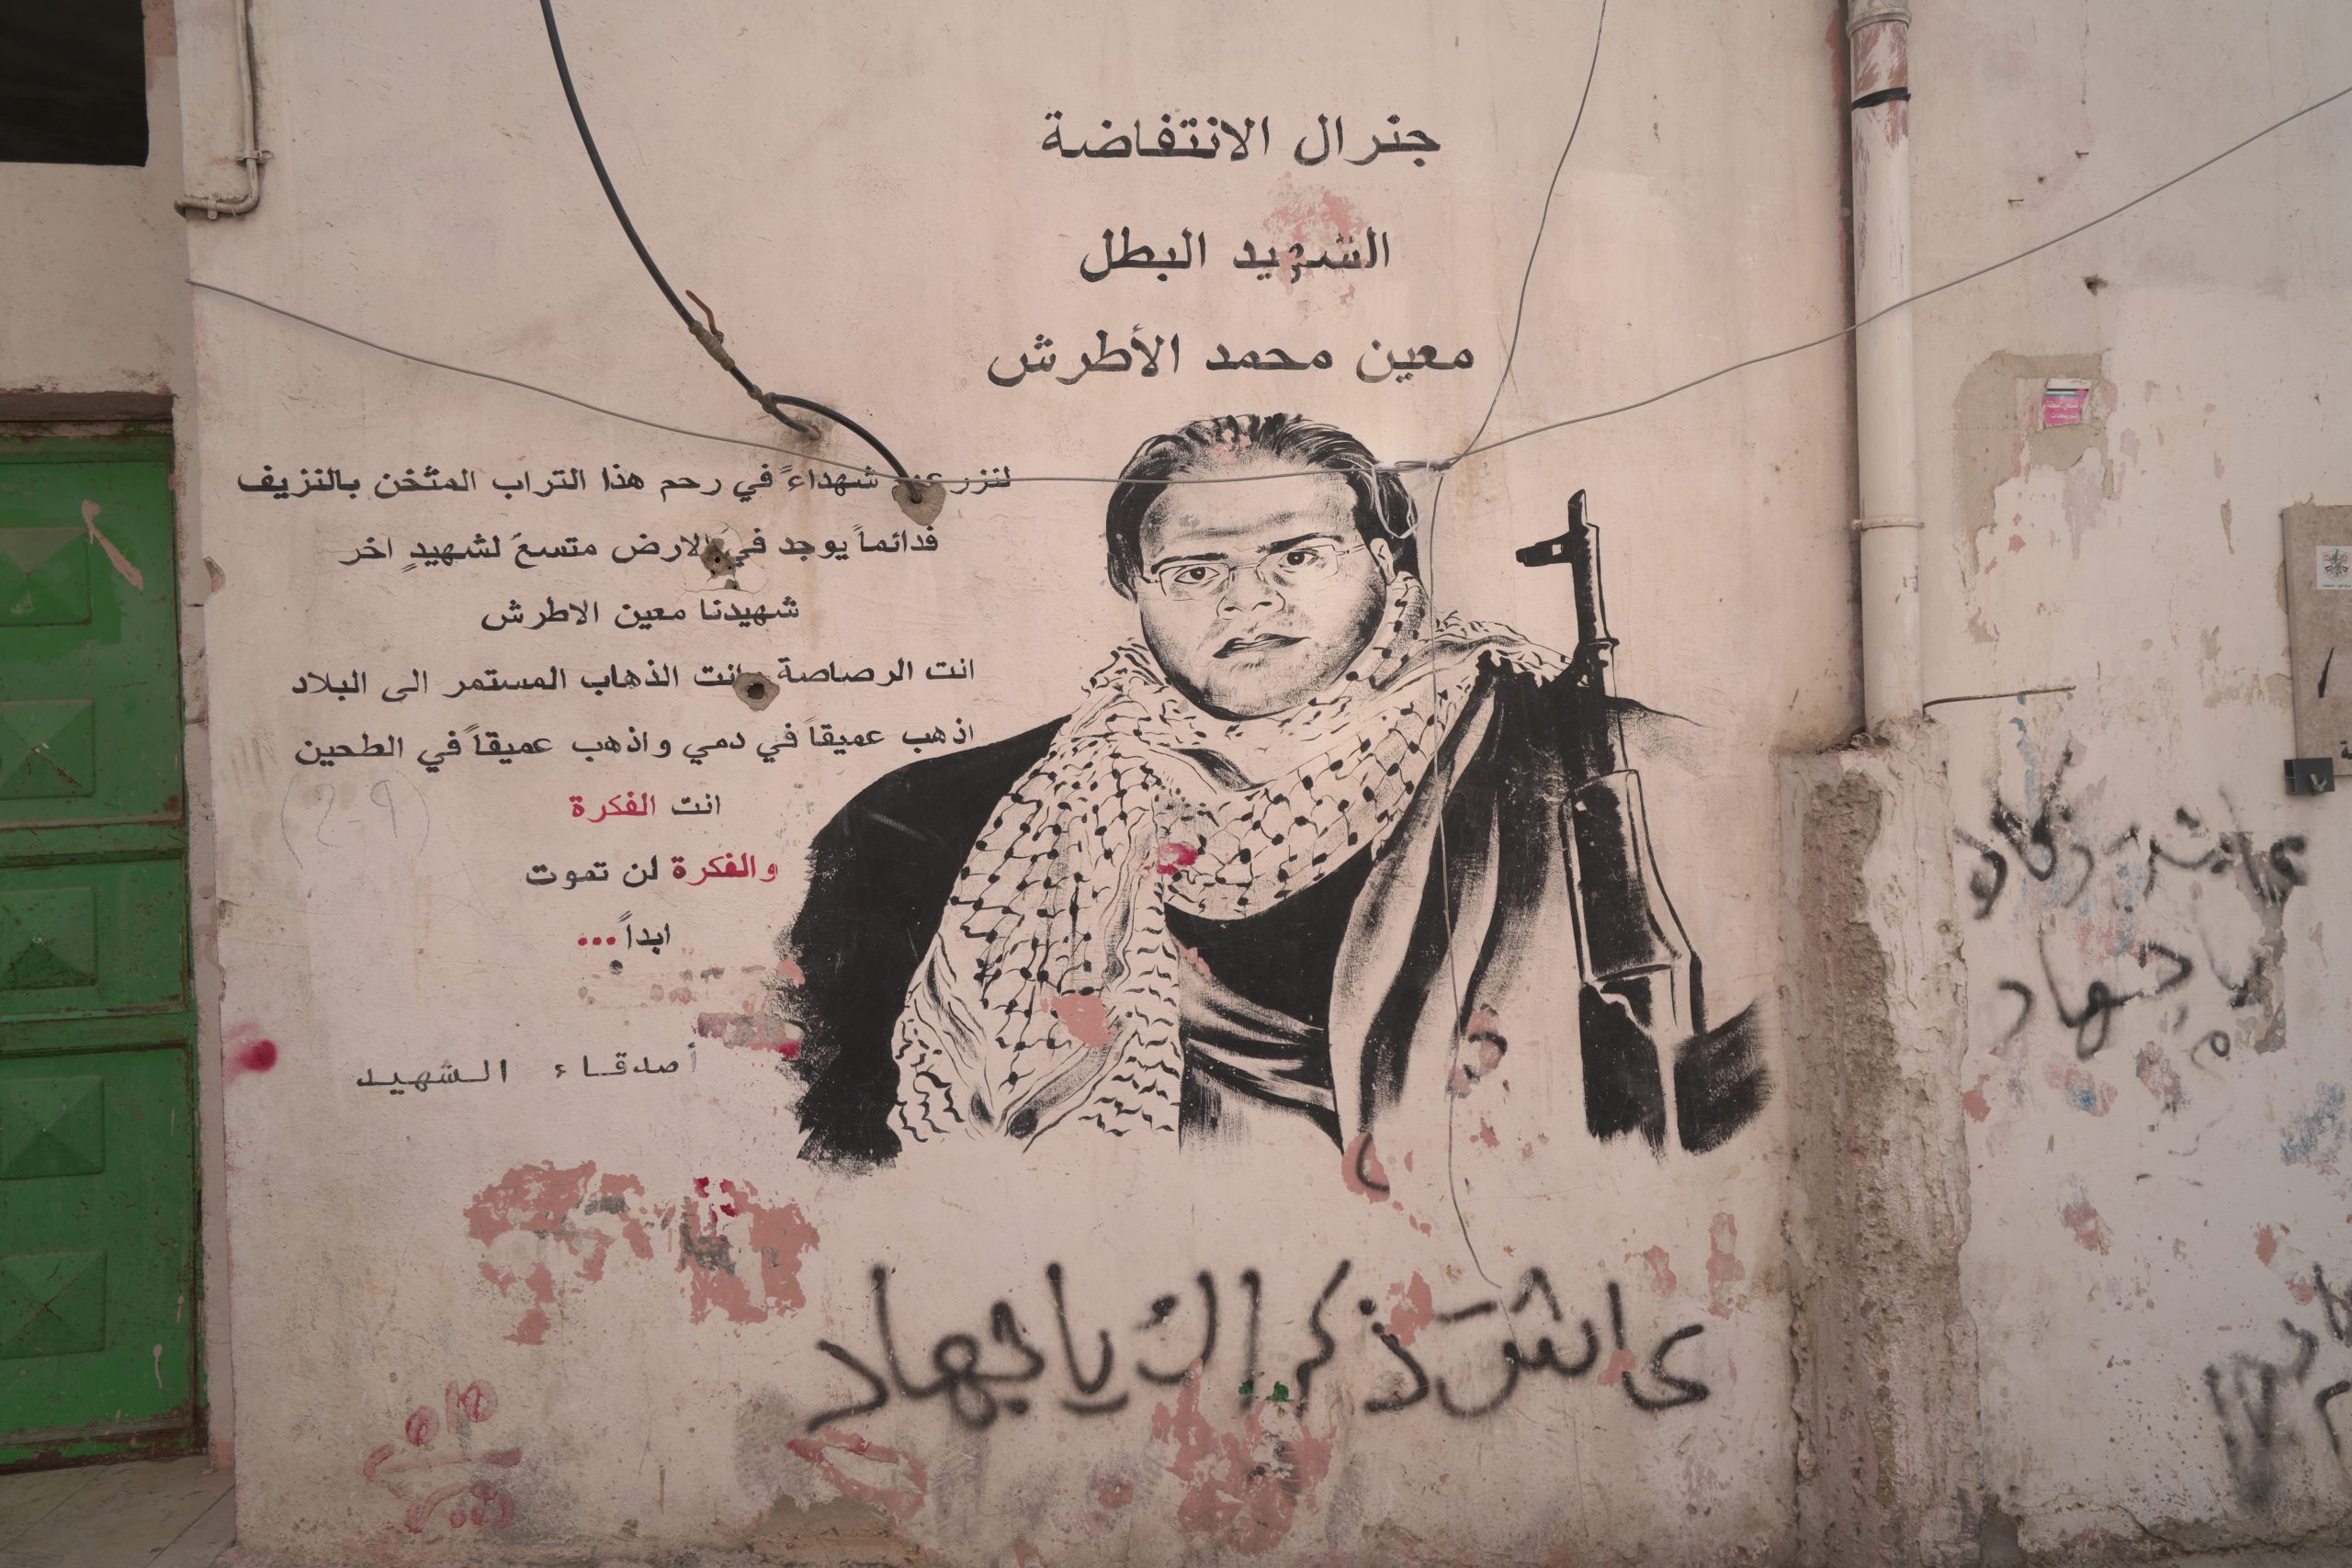 جنرال الانتفاضة
الشهيد البطل
معين محمد الأطرش
لنزرعنه شهداءً في رحم هذا التراب المثخن بالنزيف
فدائماً يوجد في الارض متسعً لشهيدٍ اخر
شهيدنا معين الاطرش
انت الرصاصة وانت الذهاب المستمر الى البلاد
اذهب عميقاً في دمي واذهب عميقاً في الطحين
انت الفكرة
والفكرة لن تموت
ابداً...
أصدقاء الشهيد
عاشت ذكراك يا جهاد
عاشت ذكراك
يا جهاد